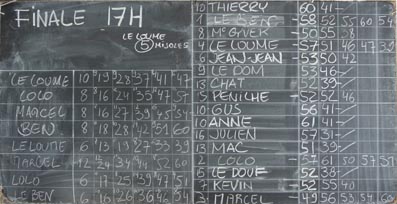 FINALE 17H
LE LOUME
5 MINOLES
LE LOUME 10 19 28 37 41 47
LOLO 8 16 24 35 47 57
MARCEL 8 16 27 39 45 54
BEN 8 18 28 42 51 60
LE LOUME 6 13 19 27 33 39
MARCEL 12 24 34 44 52 60
LOLO 6 17 25 39 47 51
LE BEN 6 16 26 36 46 54
10 THIERRY -60 41 -
1 LE BEN -58 52 55 60 54
8 -50 55 38
4 LE LOUME -57 51 46 47 39
6 JEAN-JEAN -53 50 42
9 LE DOM -53 46 -
13 CHAT -52 39 -
5 PENICHE -52 52 46
10 GUS -56 41 -
10 ANNE -61 41 -
16 JULIEN -57 31 -
13 MAC -51 39 -
2 LOLO -57 61 50 57 51
15 LE DOUF -52 38 -
7 KEVIN -52 55 40
3 MARCEL -49 56 53 54 60